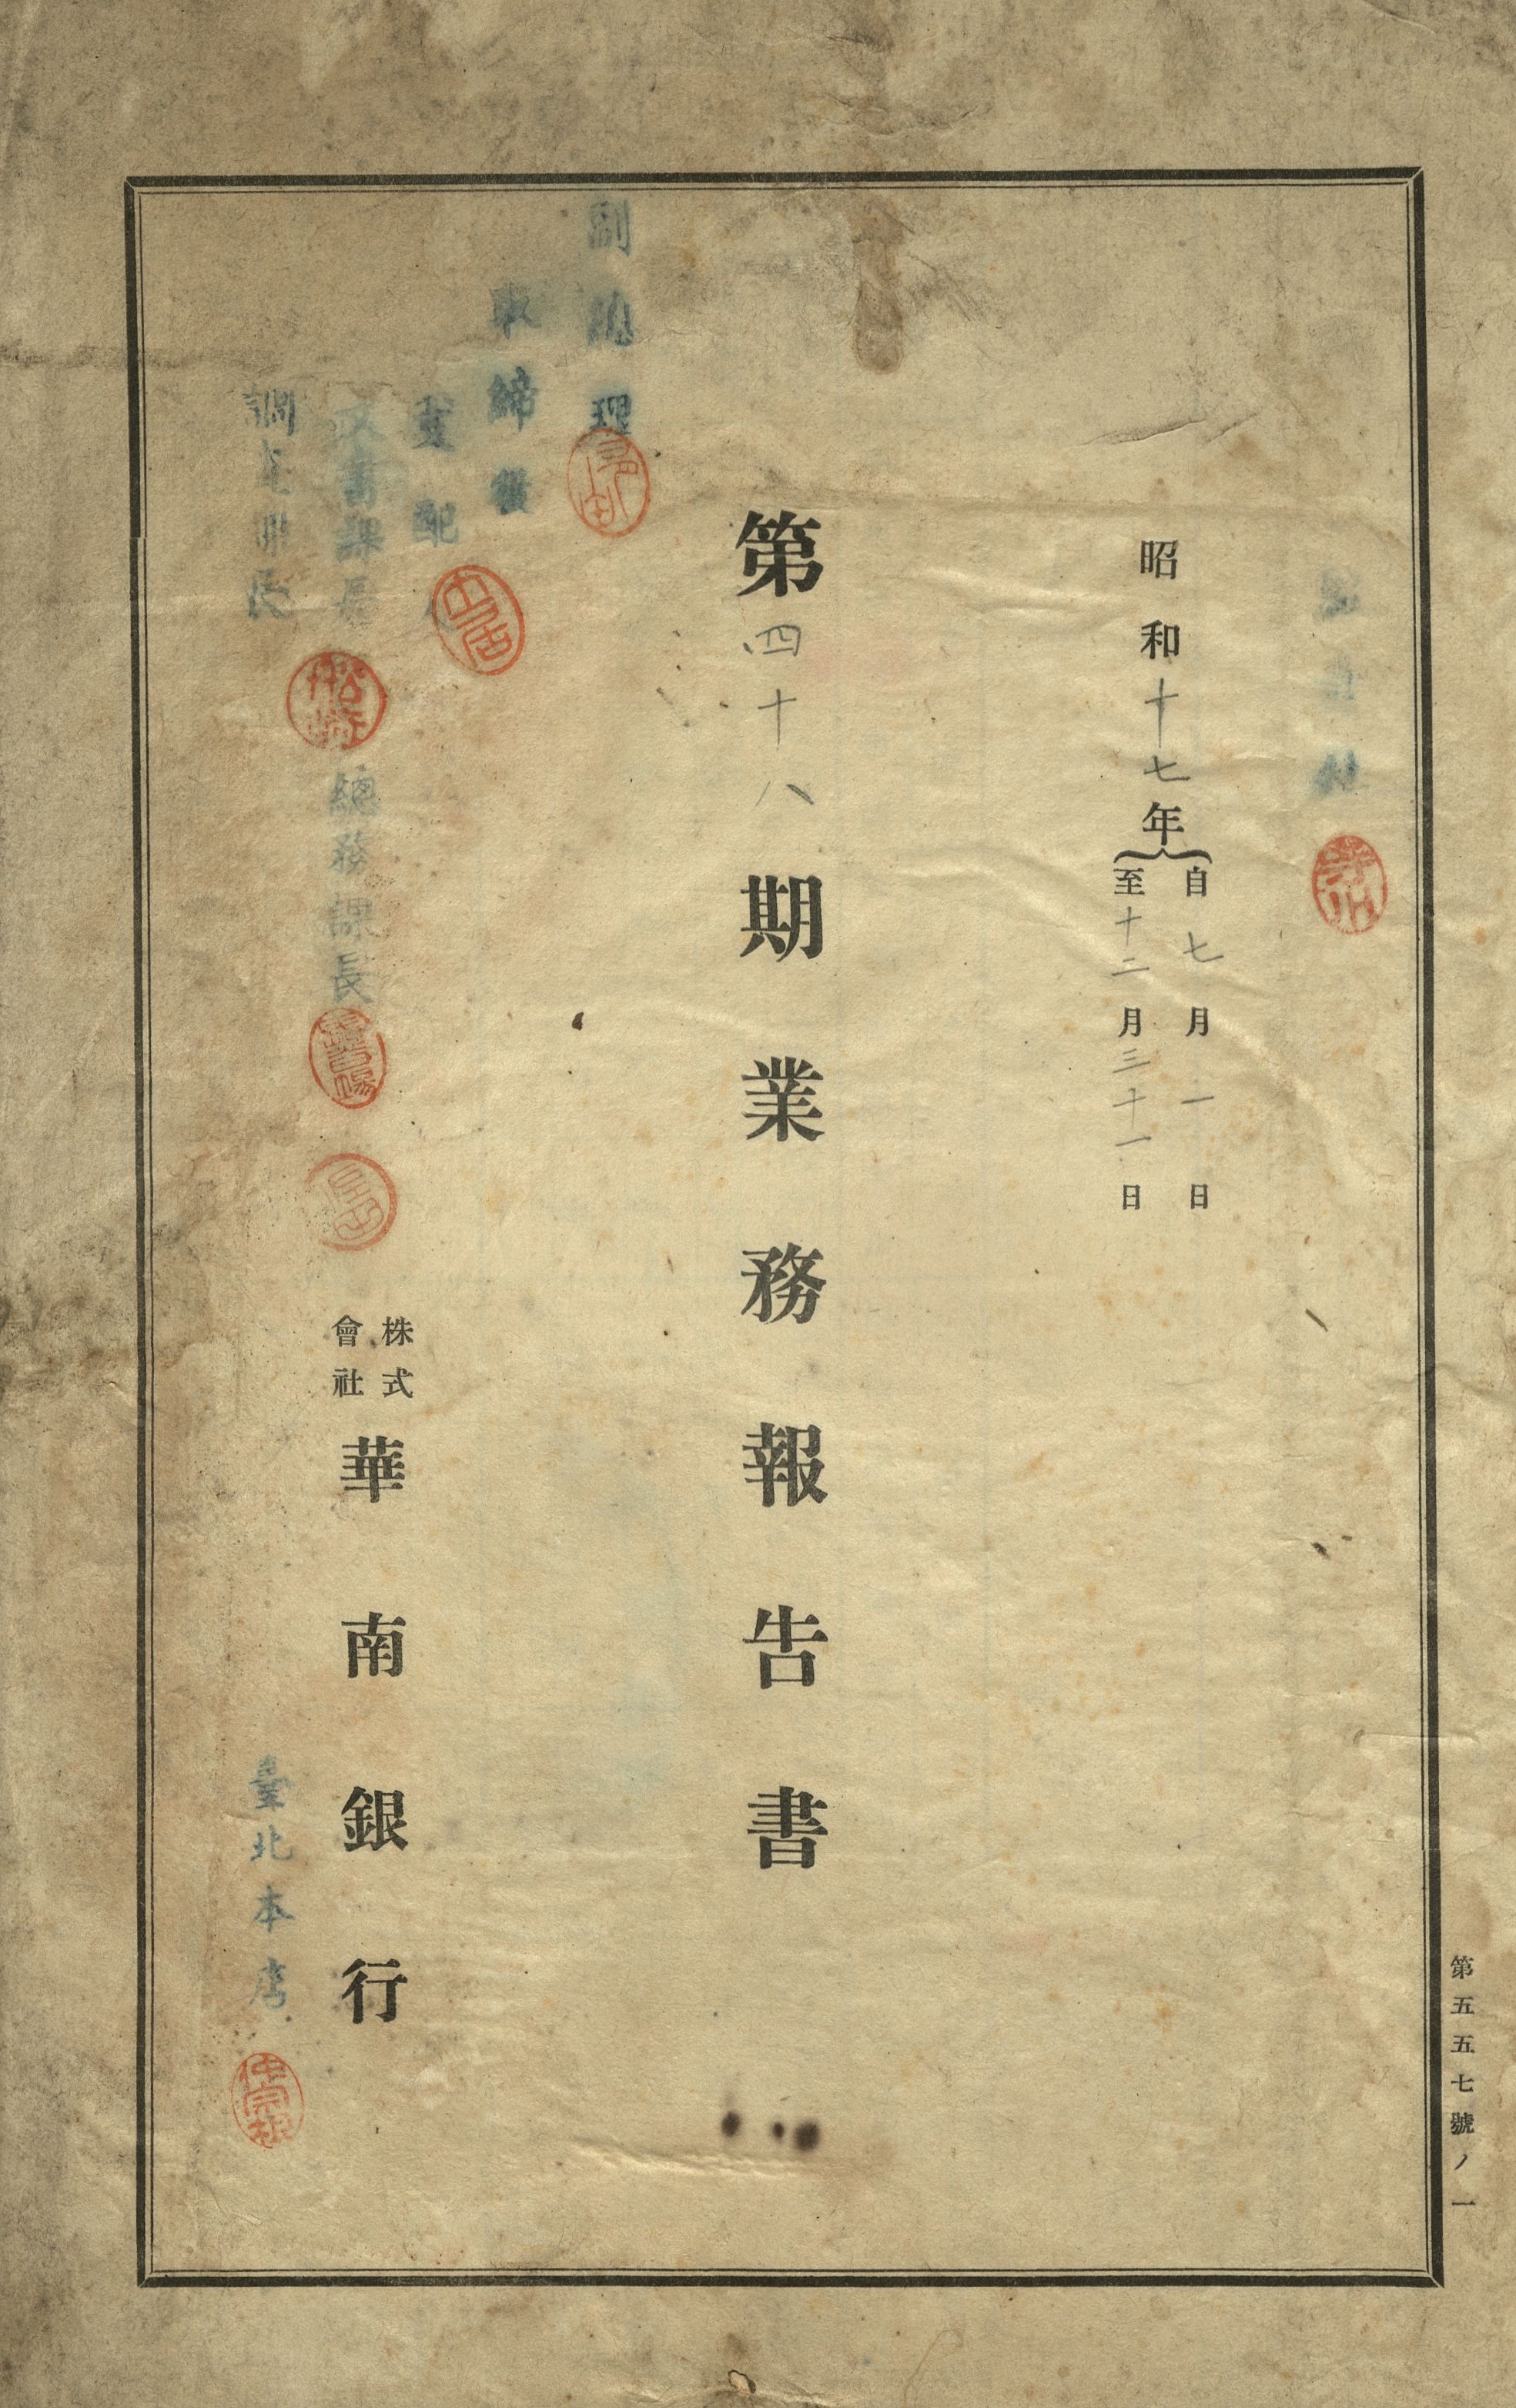 昭和十七年
自七月一日
至十二月三十一日
第四十八期業務報告書
副總理
取締役
支配
文書課長
總務課長
調査課長
株式會社華南銀行
臺北本店
仲宗根
第五五七號ノ一